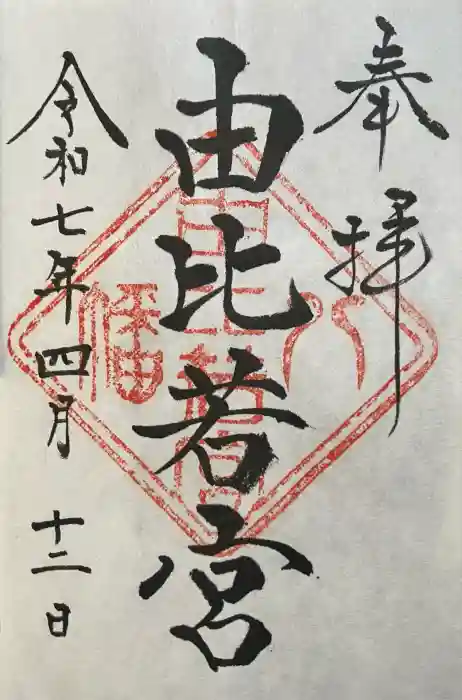 奉拝
由比若宮
八幡
令和七年四月十二日